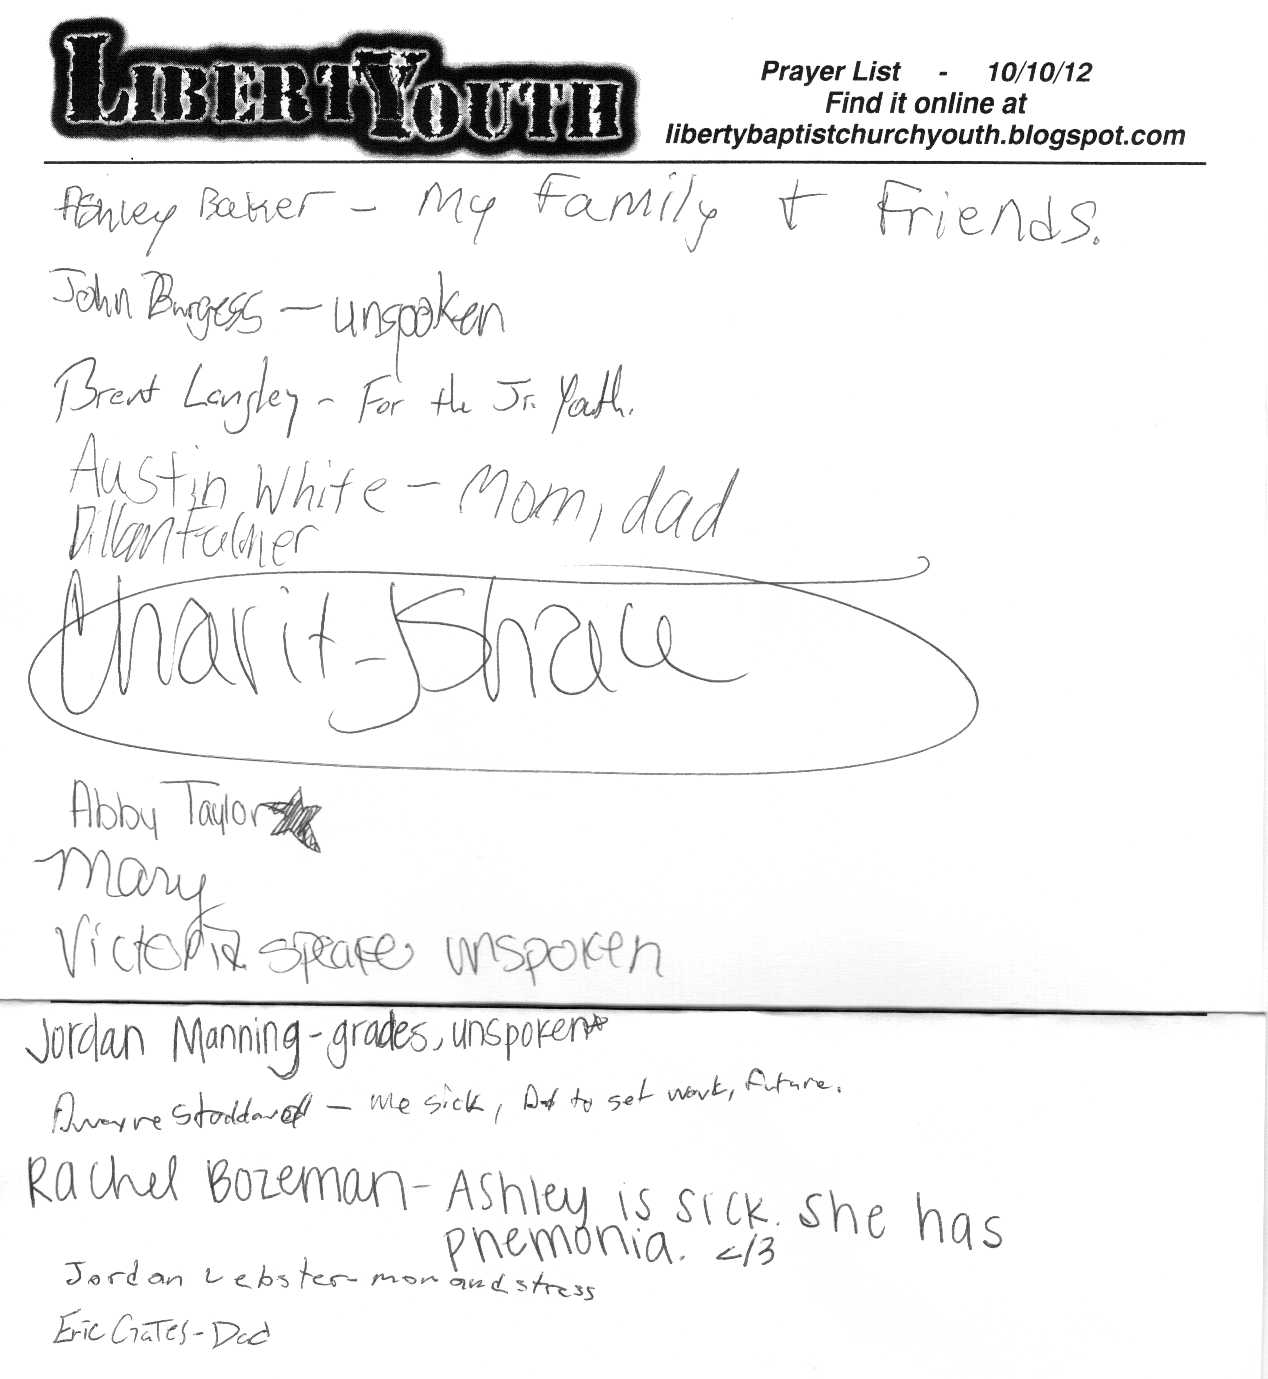 LIBERTYOUTH
Prayer List - 10/10/12
Find it online at
libertybaptistchurchyouth.blogspot.com
Ashley Baker - My Family + Friends.
John Burgess - unspoken
Brent Langley - For the Jr. Youth.
Austin White - Mom, dad
Dillan Fulmer
Charity Shaw
Abby Taylor
Mary
Victoria speare unspoken
Jordan Manning - grades, unspoken
Dwayne Stoddard - me sick, to get work, Future.
Rachel Bozeman - Ashley is sick. she has
pnemonia. </3
Jordan Webster - mom and stress
Eric Gates - Dad